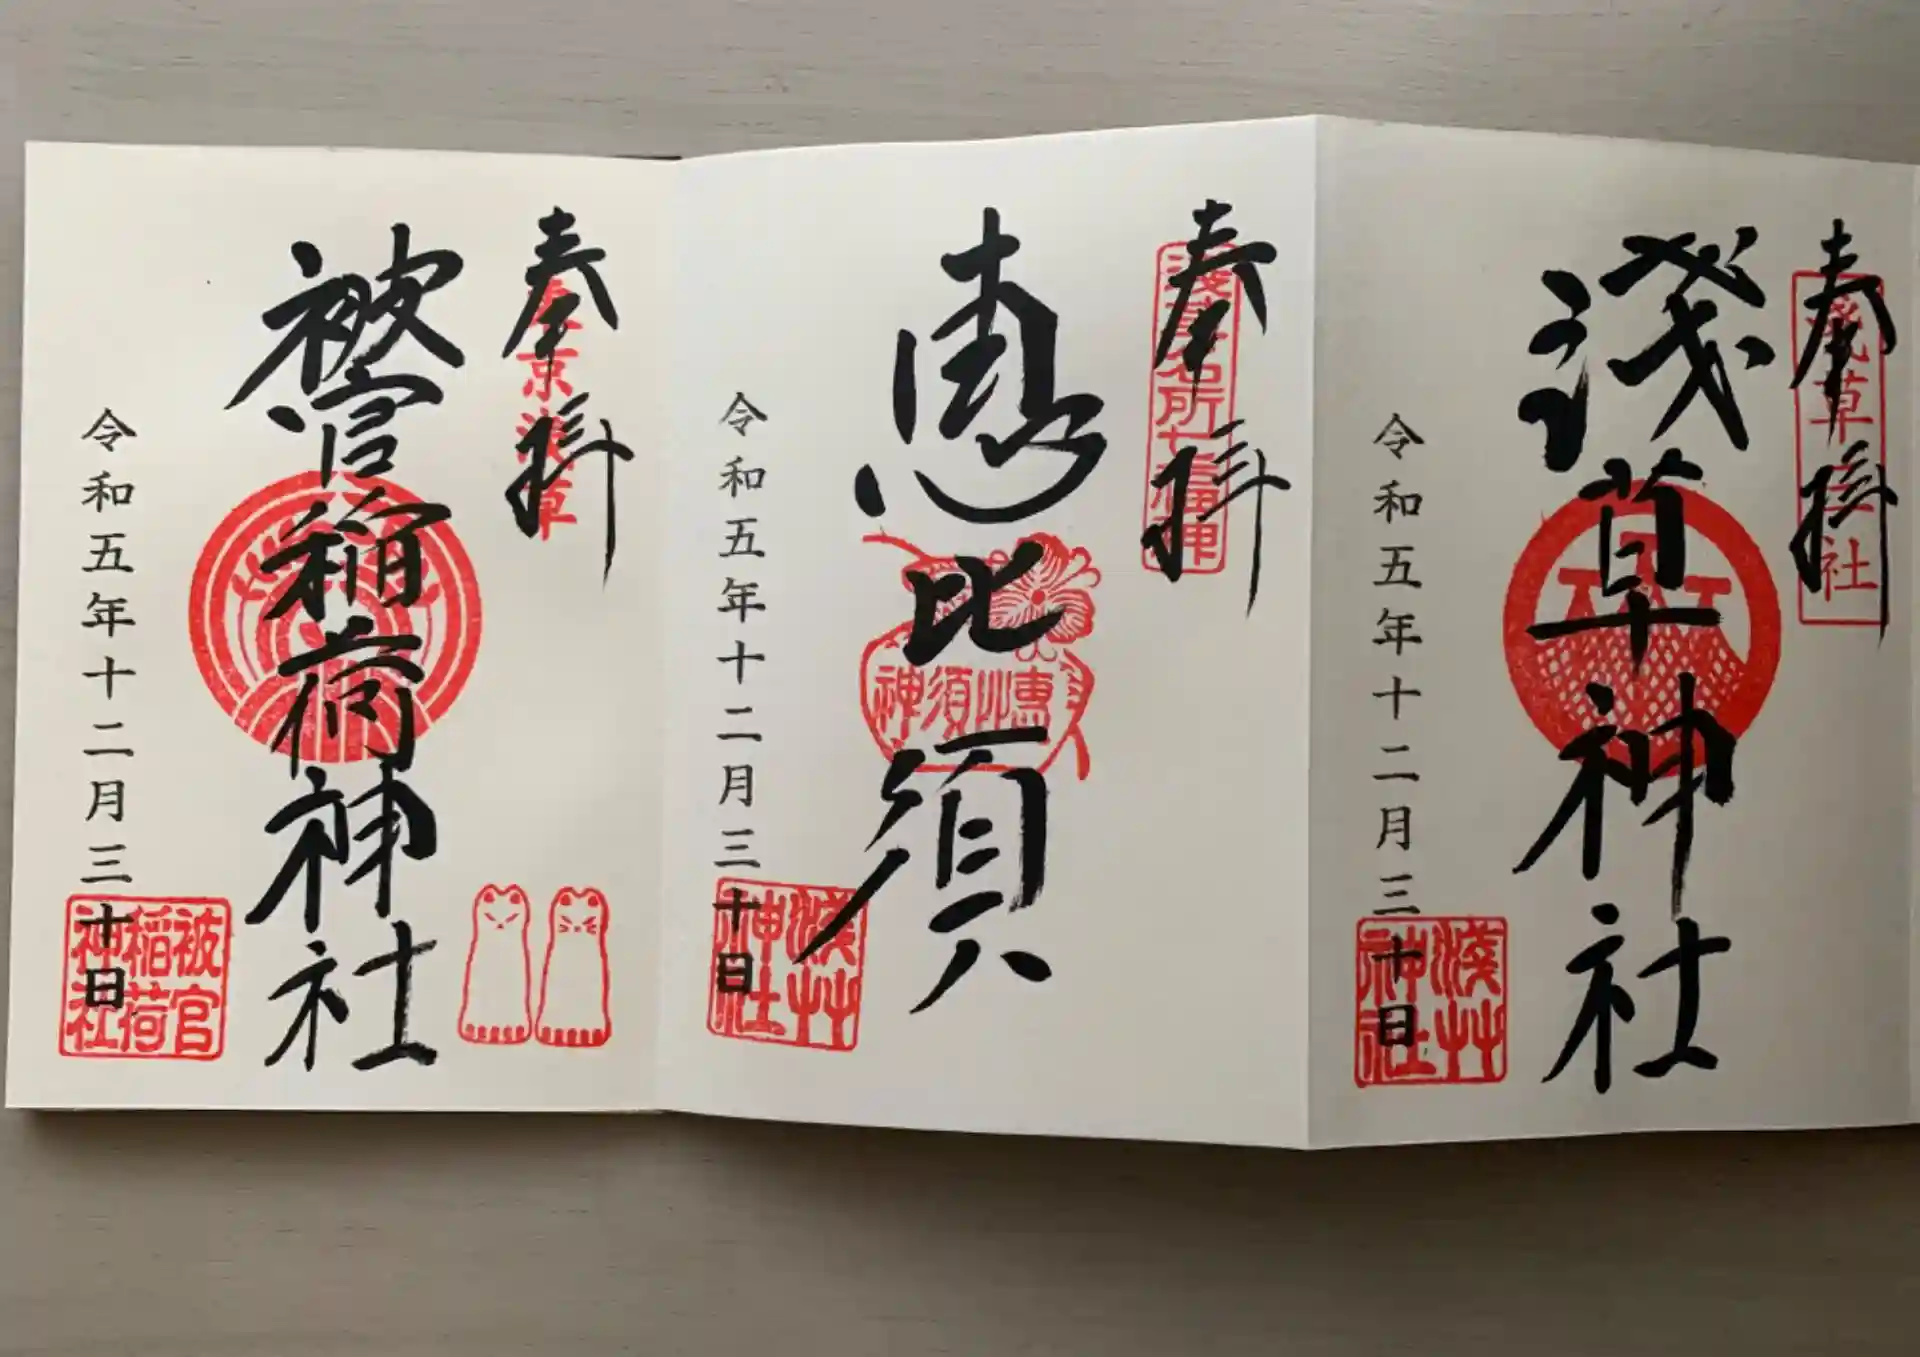 奉拝
浅草神社
淺草神社
令和五年十二月三十日
淺艸神社
奉拝
浅草名所七福神
恵比須
恵比須神
令和五年十二月三十日
淺艸神社
奉拝
東京浅草
被官稲荷神社
令和五年十二月三十日
被官稲荷神社